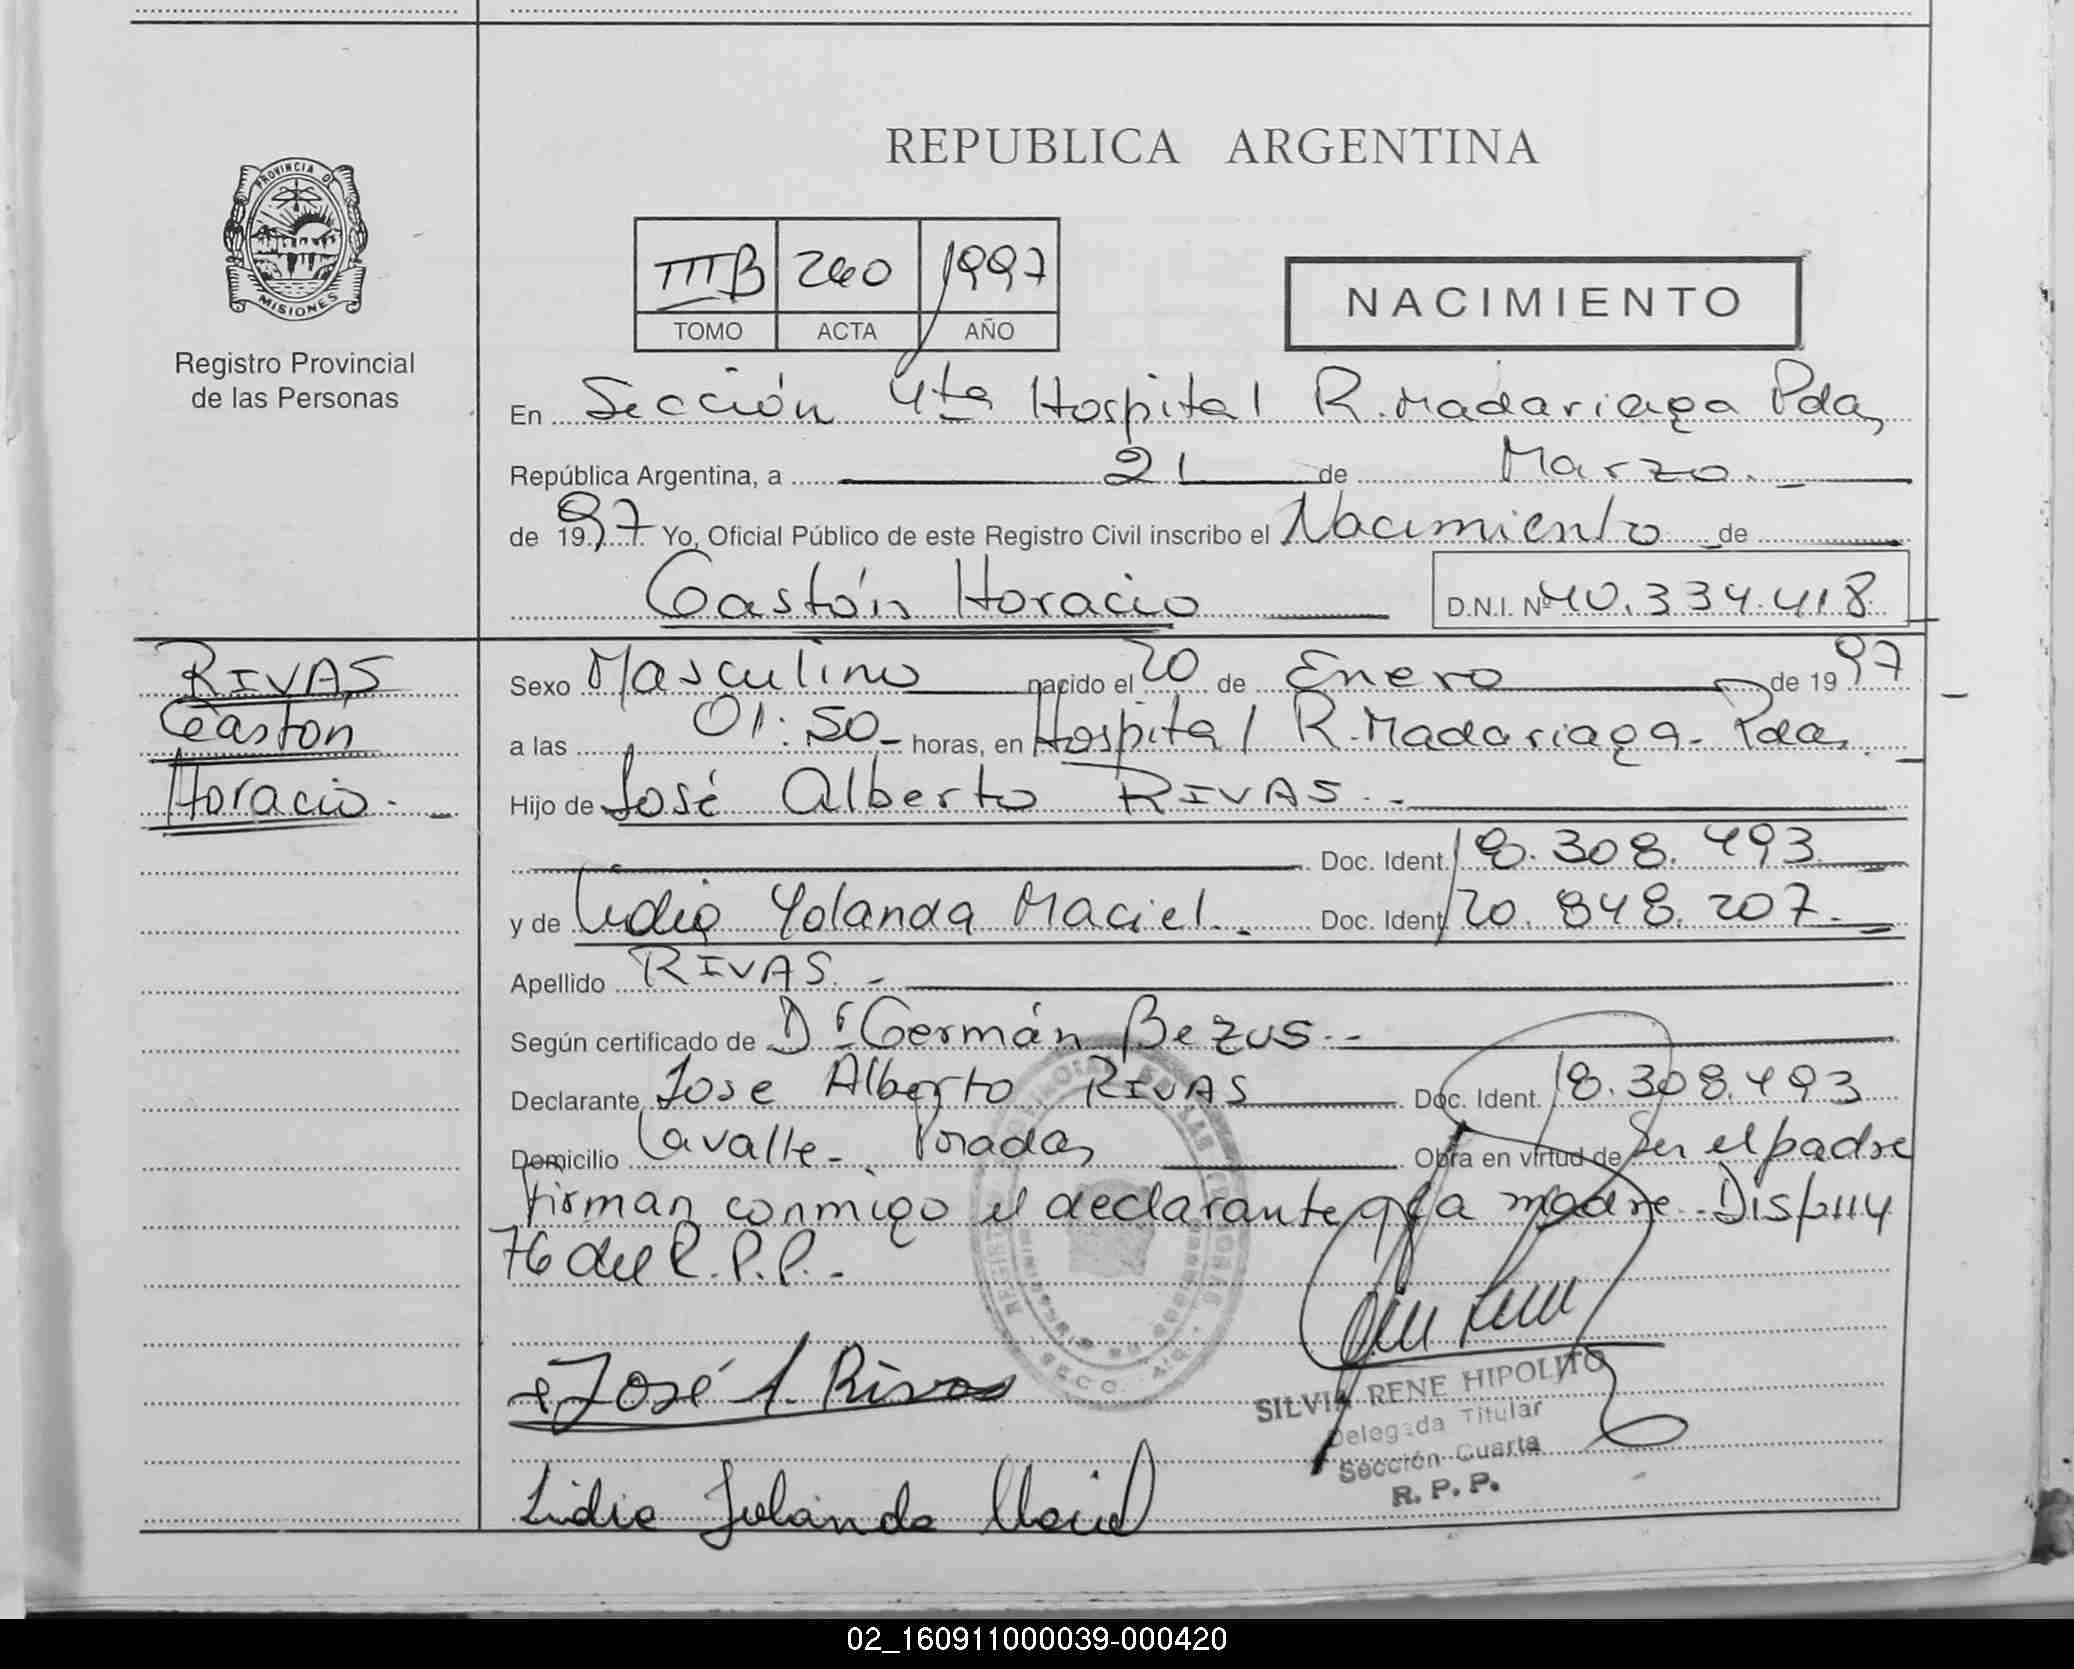 REPUBLICA ARGENTINA
PROVINCIA DE
MISIONES
Registro Provincial
de las Personas
III B 240 1997
TOMO ACTA AÑO
NACIMIENTO
En Sección 4ta Hospital R. Madariaga Pdas
República Argentina, a 21 de Marzo.
de 1997 Yo, Oficial Público de este Registro Civil inscribo el Nacimiento de
Gastón Horacio D.N.I. Nº 40.334.418
RIVAS
Gaston
Horacio.
Sexo Masculino nacido el 20 de Enero de 1997
a las 01:50 horas, en Hospital R. Madariaga - Pdas.
Hijo de José Alberto RIVAS.-
Doc. Ident. 18.308.493
y de Lidia Yolanda Maciel.- Doc. Ident. 20.848.207.-
Apellido RIVAS.-
Según certificado de Dr Germán Bezus.-
Declarante Jose Alberto RIVAS Doc. Ident. 18.308.493
Domicilio Lavalle - Posadas Obra en virtud de Ser el padre
firman conmigo el declarante y la madre - Disp. 114
76 del R.P.P.-
José A. Rivas
SILVIA RENE HIPOLITO
Delegada Titular
Sección Cuarta
R. P. P.
Lidia Yolanda Maciel
02_160911000039-000420